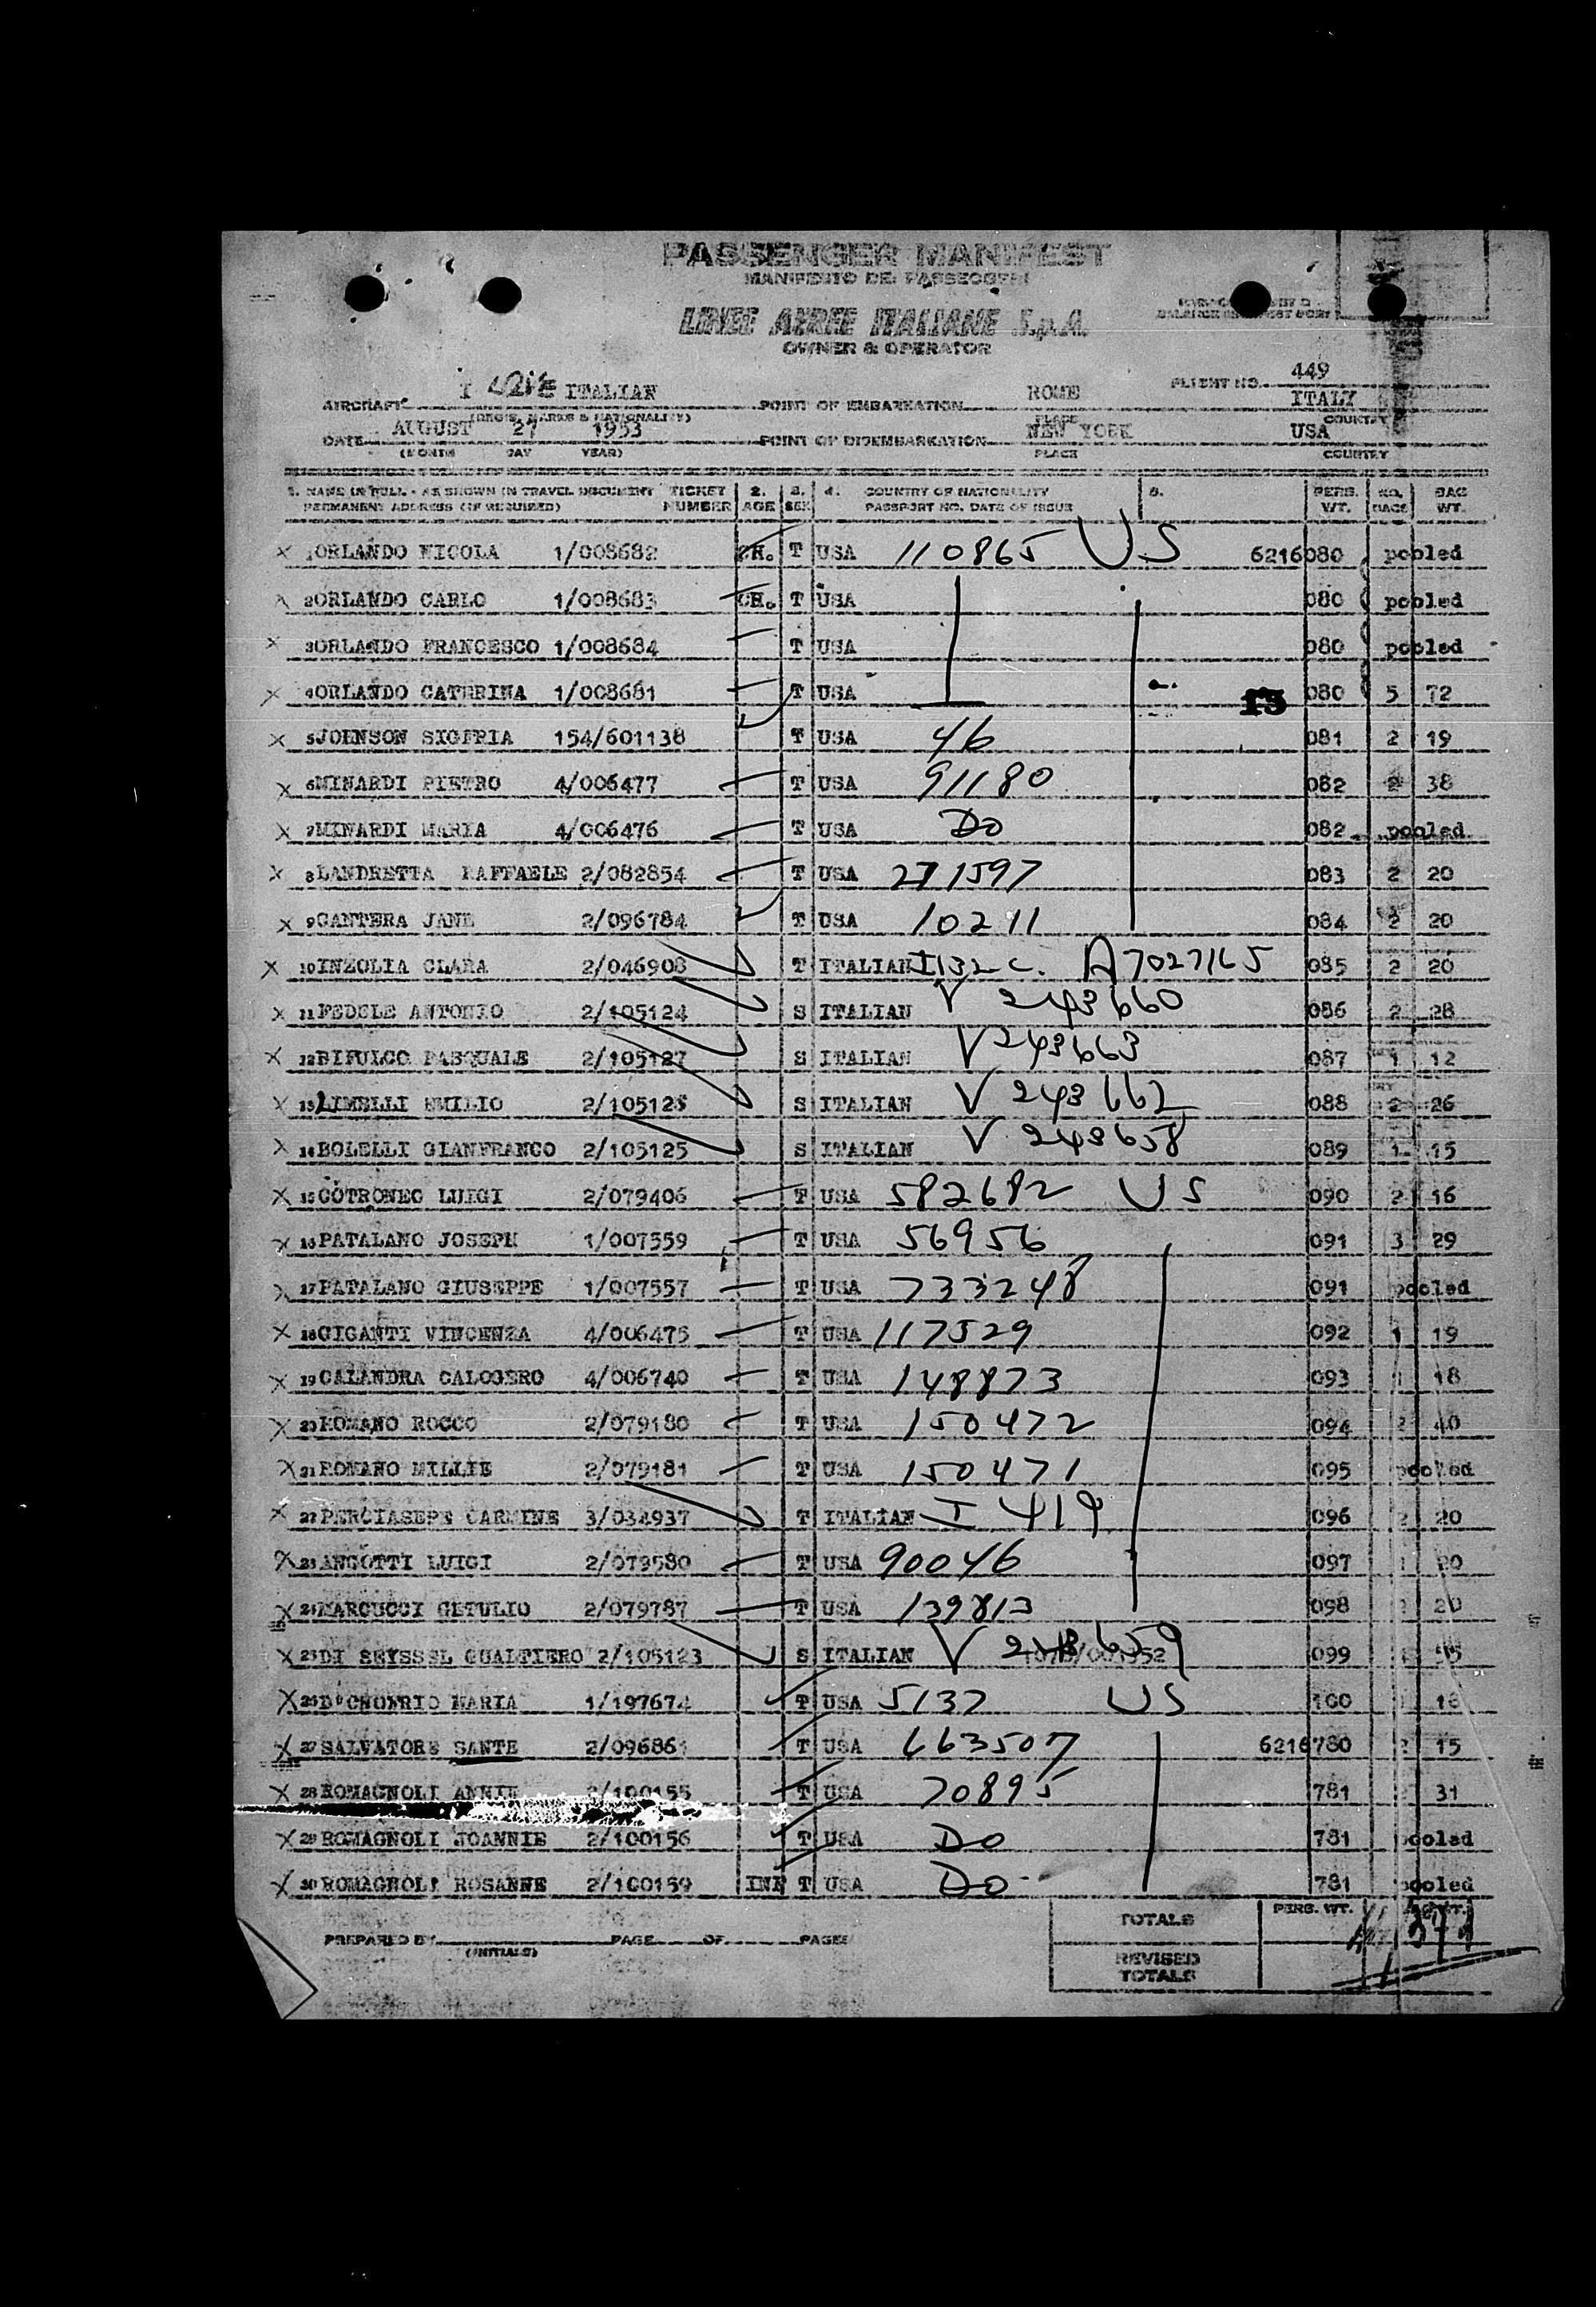 PASSENGER MANIFEST
MANIFESTO DEI PASSEGGERI
LINEE AEREE ITALIANE S.p.A.
OWNER & OPERATOR
AIRCRAFT I ITALIAN POINT OF EMBARKATION ROME FLIGHT NO. 449 ITALY
(REGIS. MARKS & NATIONALITY) PLACE COUNTRY
DATE AUGUST 27 1953 POINT OF DISEMBARKATION NEW YORK USA
(MONTH DAY YEAR) PLACE COUNTRY
1. NAME IN FULL - AS SHOWN IN TRAVEL DOCUMENT TICKET 2. 3. 4. COUNTRY OF NATIONALITY 5. PERS. NO. BAG
PERMANENT ADDRESS (IF REQUIRED) NUMBER AGE SEX PASSPORT NO. DATE OF ISSUE WT. BAGS WT.
X 1 ORLANDO NICOLA 1/008682 CH. T USA 110865 US 6216080 pooled
X 2 ORLANDO CARLO 1/008683 CH. T USA 080 pooled
X 3 ORLANDO FRANCESCO 1/008684 T USA 080 pooled
X 4 ORLANDO CATERINA 1/008681 T USA 13 080 5 72
X 5 JOHNSON SIGFRIA 154/601138 T USA 46 081 2 19
X 6 MINARDI PIETRO 4/006477 T USA 91180 082 2 38
X 7 MINARDI MARIA 4/006476 T USA Do 082 pooled
X 8 LANDRETTA RAFFAELE 2/082854 T USA 271597 083 2 20
X 9 CANTERA JANE 2/096784 T USA 10211 084 2 20
X 10 INZOLIA CLARA 2/046908 T ITALIAN I132 C. A7027165 085 2 20
X 11 FEDELE ANTONIO 2/105124 S ITALIAN V 243660 086 2 28
X 12 BIFULCO PASQUALE 2/105127 S ITALIAN V 243663 087 1 12
X 13 LIMELLI EMILIO 2/105128 S ITALIAN V 243662 088 2 26
X 14 BOLELLI GIANFRANCO 2/105125 S ITALIAN V 243658 089 1 15
X 15 COTRONEO LUIGI 2/079406 T USA 582682 US 090 2 16
X 16 PATALANO JOSEPH 1/007559 T USA 56956 091 3 29
X 17 PATALANO GIUSEPPE 1/007557 T USA 733248 091 pooled
X 18 GIGANTI VINCENZA 4/006475 T USA 117529 092 1 19
X 19 CALANDRA CALOGERO 4/006740 T USA 148873 093 1 18
X 20 ROMANO ROCCO 2/079180 T USA 150472 094 2 40
X 21 ROMANO MILLIE 2/079181 T USA 150471 095 pooled
X 22 PERCIASEPE CARMINE 3/034937 T ITALIAN I 419 096 2 20
X 23 ANGOTTI LUIGI 2/079580 T USA 90046 097 1 20
X 24 MARCUCCI GETULIO 2/079787 T USA 139813 098 20
X 25 DI SEYSSEL GUALTIERO 2/105123 S ITALIAN V 243659 099
X 26 D'ONOFRIO MARIA 1/197674 T USA 5137 US 100 18
X 27 SALVATORE SANTE 2/096861 T USA 663507 6216780 2 15
X 28 ROMAGNOLI ANNIE 2/100155 T USA 70895 781 31
X 29 ROMAGNOLI JOANNIE 2/100156 T USA Do 781 pooled
X 30 ROMAGNOLI ROSANNE 2/100159 INF T USA Do 781 pooled
PREPARED BY PAGE OF PAGES TOTALS PERS. WT.
(INITIALS)
REVISED
TOTALS